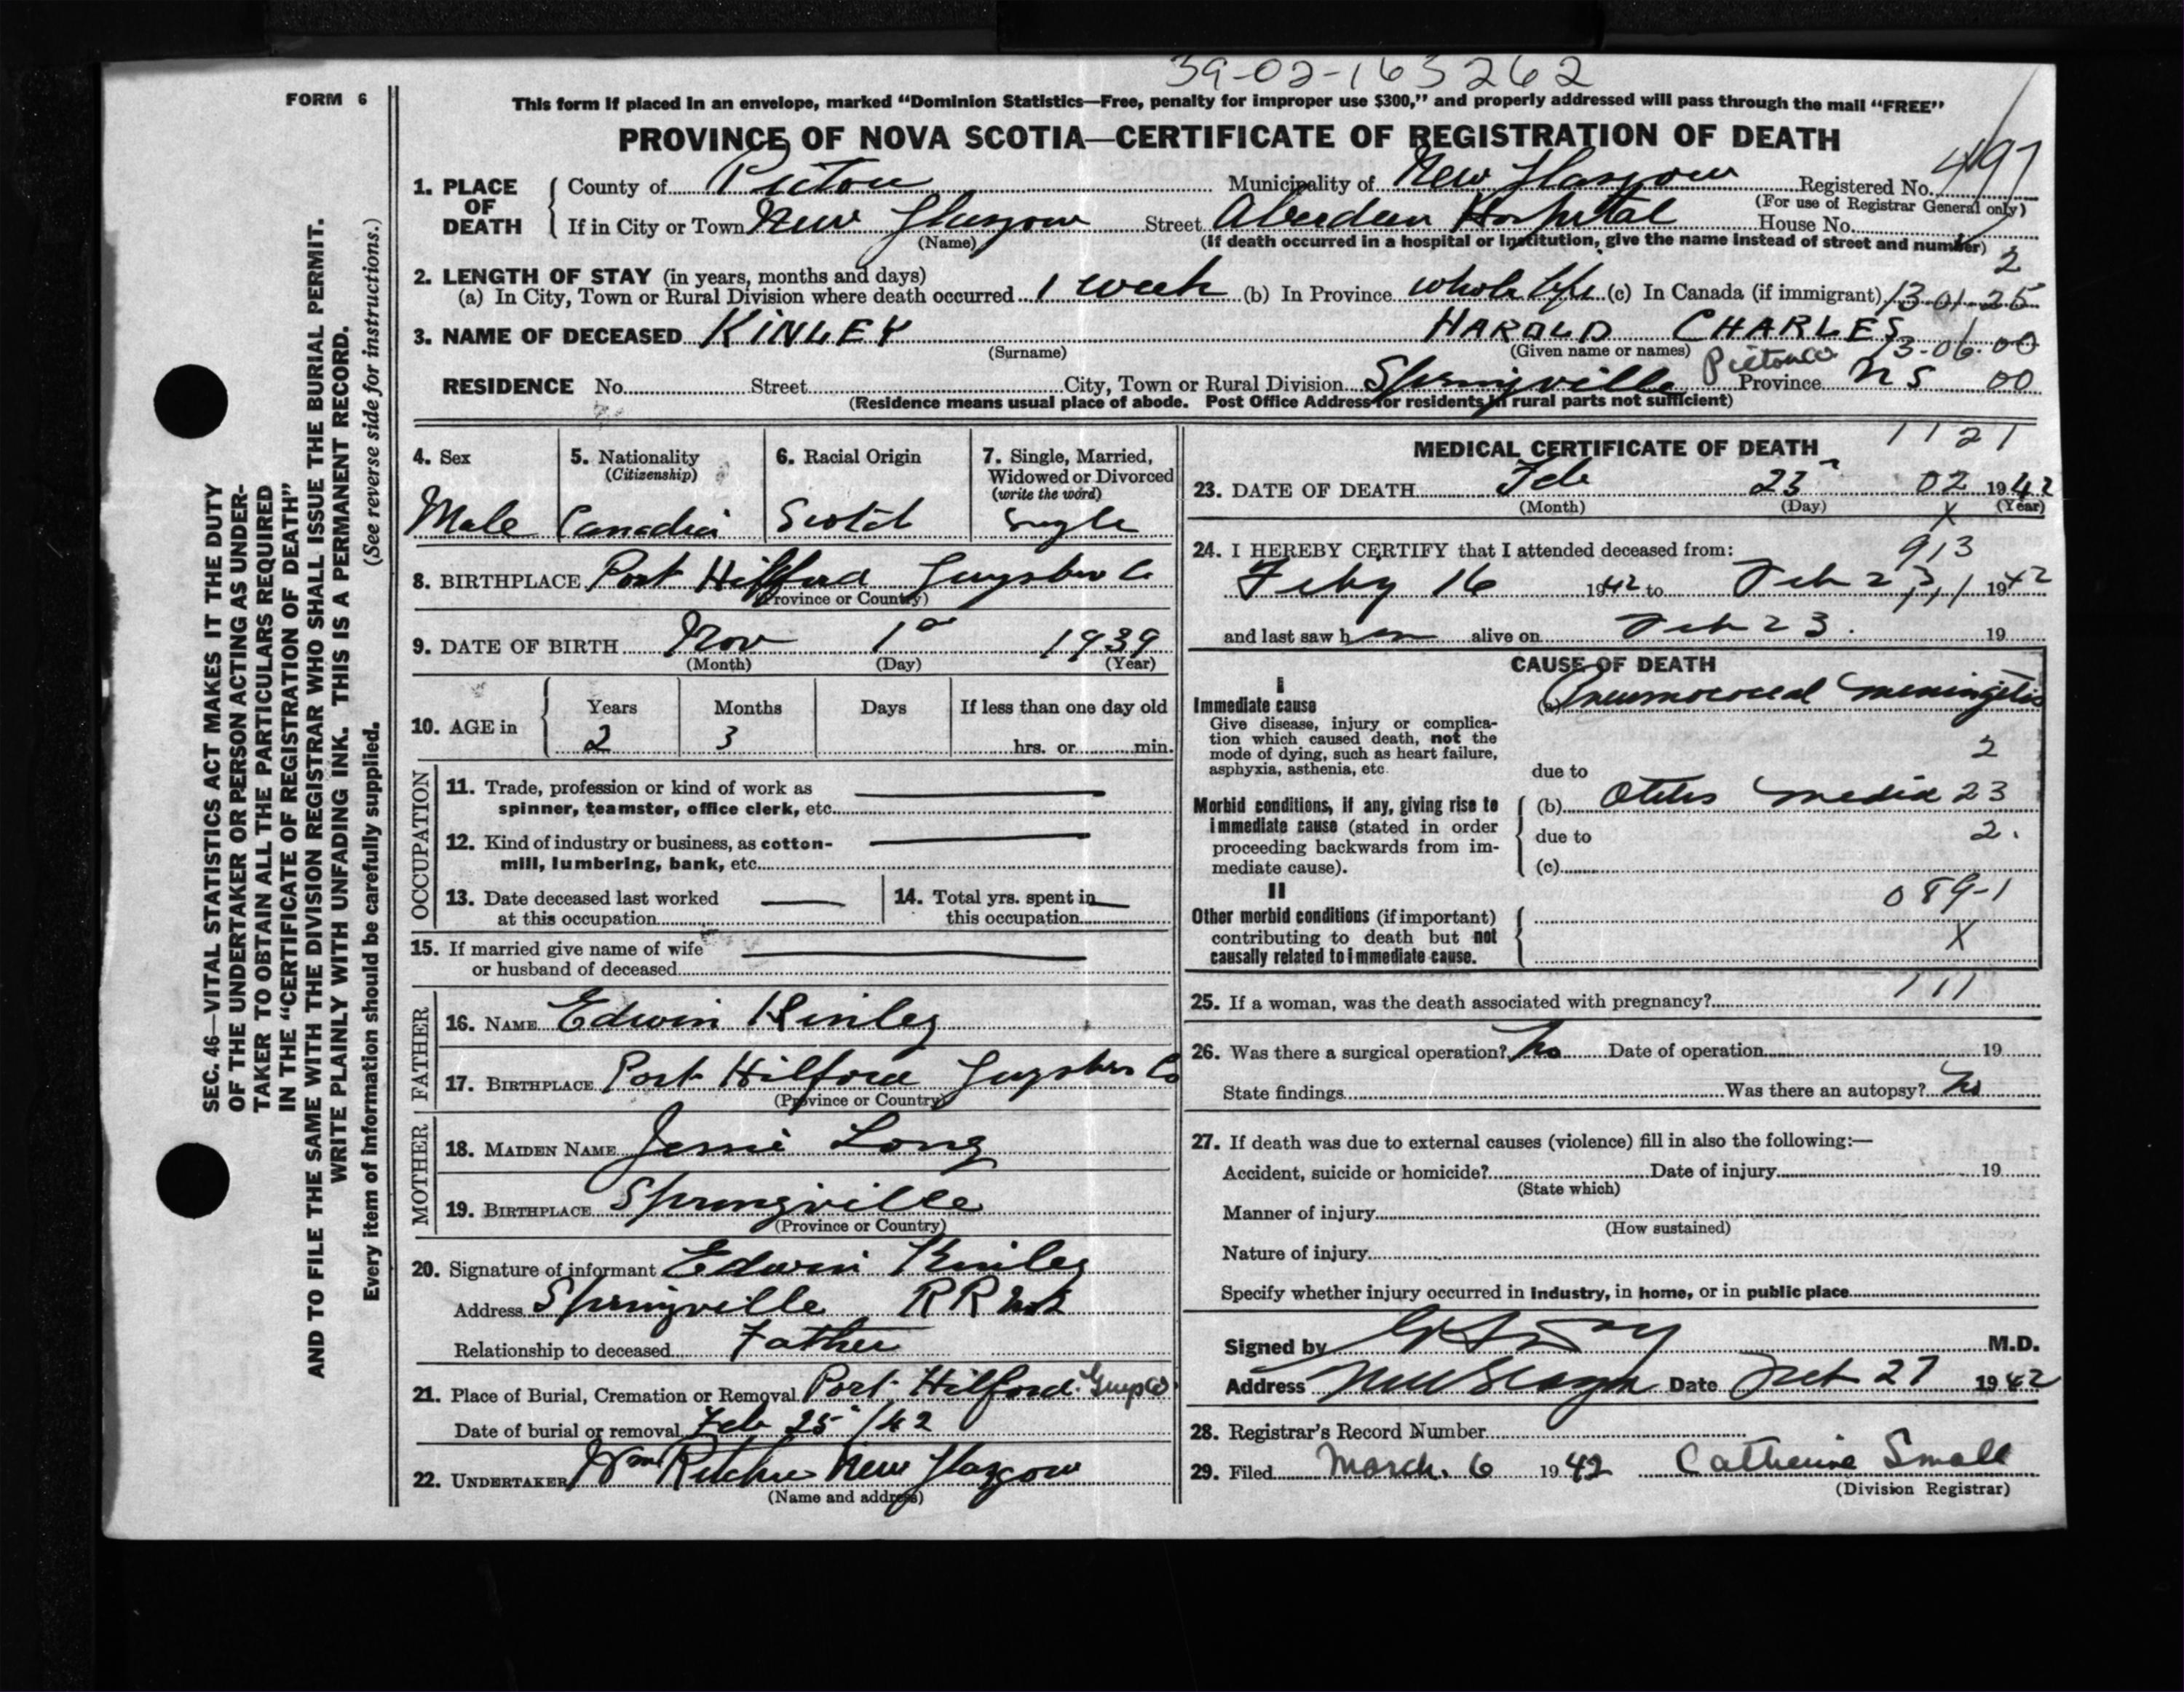 39-02-163262
FORM 6
This form if placed in an envelope, marked "Dominion Statistics—Free, penalty for improper use $300," and properly addressed will pass through the mail "FREE"
PROVINCE OF NOVA SCOTIA—CERTIFICATE OF REGISTRATION OF DEATH
1. PLACE OF DEATH
County of Pictou Municipality of New Glasgow Registered No. 497
(For use of Registrar General only)
If in City or Town New Glasgow Street Aberdeen Hospital House No.
(Name) (If death occurred in a hospital or institution, give the name instead of street and number)
2
2. LENGTH OF STAY (in years, months and days)
(a) In City, Town or Rural Division where death occurred 1 week (b) In Province whole life (c) In Canada (if immigrant) 13-01-25
3. NAME OF DECEASED KINLEY HAROLD CHARLES
(Surname) (Given name or names) 13-06-00
RESIDENCE No. Street City, Town or Rural Division Springville Pictou Co Province N S 00
(Residence means usual place of abode. Post Office Address for residents in rural parts not sufficient)
4. Sex 5. Nationality (Citizenship) 6. Racial Origin 7. Single, Married, Widowed or Divorced (write the word)
Male Canadian Scotch Single
8. BIRTHPLACE Port Hilford Guysboro Co
(Province or Country)
9. DATE OF BIRTH Nov 1st 1939
(Month) (Day) (Year)
10. AGE in Years Months Days If less than one day old
2 3 hrs. or min.
OCCUPATION
11. Trade, profession or kind of work as
spinner, teamster, office clerk, etc.
12. Kind of industry or business, as cotton-
mill, lumbering, bank, etc.
13. Date deceased last worked at this occupation
14. Total yrs. spent in this occupation
15. If married give name of wife
or husband of deceased
FATHER
16. NAME Edwin Kinley
17. BIRTHPLACE Port Hilford Guysboro Co
(Province or Country)
MOTHER
18. MAIDEN NAME Jessie Long
19. BIRTHPLACE Springville
(Province or Country)
20. Signature of informant Edwin Kinley
Address Springville R R No 1
Relationship to deceased Father
21. Place of Burial, Cremation or Removal Port Hilford Guys Co
Date of burial or removal Feb 25 /42
22. UNDERTAKER Wm Ritchie New Glasgow
(Name and address)
MEDICAL CERTIFICATE OF DEATH 1121
23. DATE OF DEATH Feb 23 02 1942
(Month) (Day) (Year)
X
24. I HEREBY CERTIFY that I attended deceased from: 913
Feby 16 1942 to Feb 23, 1942
and last saw him alive on Feb 23. 19
CAUSE OF DEATH
I
Immediate cause (a) Pneumococcal meningitis
Give disease, injury or complica-
tion which caused death, not the
mode of dying, such as heart failure,
asphyxia, asthenia, etc.
2
due to
Morbid conditions, if any, giving rise to (b) Otitis media 23
immediate cause (stated in order due to 2.
proceeding backwards from im-
mediate cause). (c)
II
089-1
Other morbid conditions (if important)
contributing to death but not X
causally related to immediate cause.
25. If a woman, was the death associated with pregnancy? 111
26. Was there a surgical operation? No Date of operation 19
State findings Was there an autopsy? No
27. If death was due to external causes (violence) fill in also the following:—
Accident, suicide or homicide? Date of injury 19
(State which)
Manner of injury
(How sustained)
Nature of injury
Specify whether injury occurred in industry, in home, or in public place
Signed by M.D.
Address New Glasgow Date Feb 27 1942
28. Registrar's Record Number
29. Filed March 6 1942 Catherine Small
(Division Registrar)
SEC. 46—VITAL STATISTICS ACT MAKES IT THE DUTY
OF THE UNDERTAKER OR PERSON ACTING AS UNDER-
TAKER TO OBTAIN ALL THE PARTICULARS REQUIRED
IN THE "CERTIFICATE OF REGISTRATION OF DEATH"
AND TO FILE THE SAME WITH THE DIVISION REGISTRAR WHO SHALL ISSUE THE BURIAL PERMIT.
WRITE PLAINLY WITH UNFADING INK. THIS IS A PERMANENT RECORD.
Every item of information should be carefully supplied. (See reverse side for instructions.)